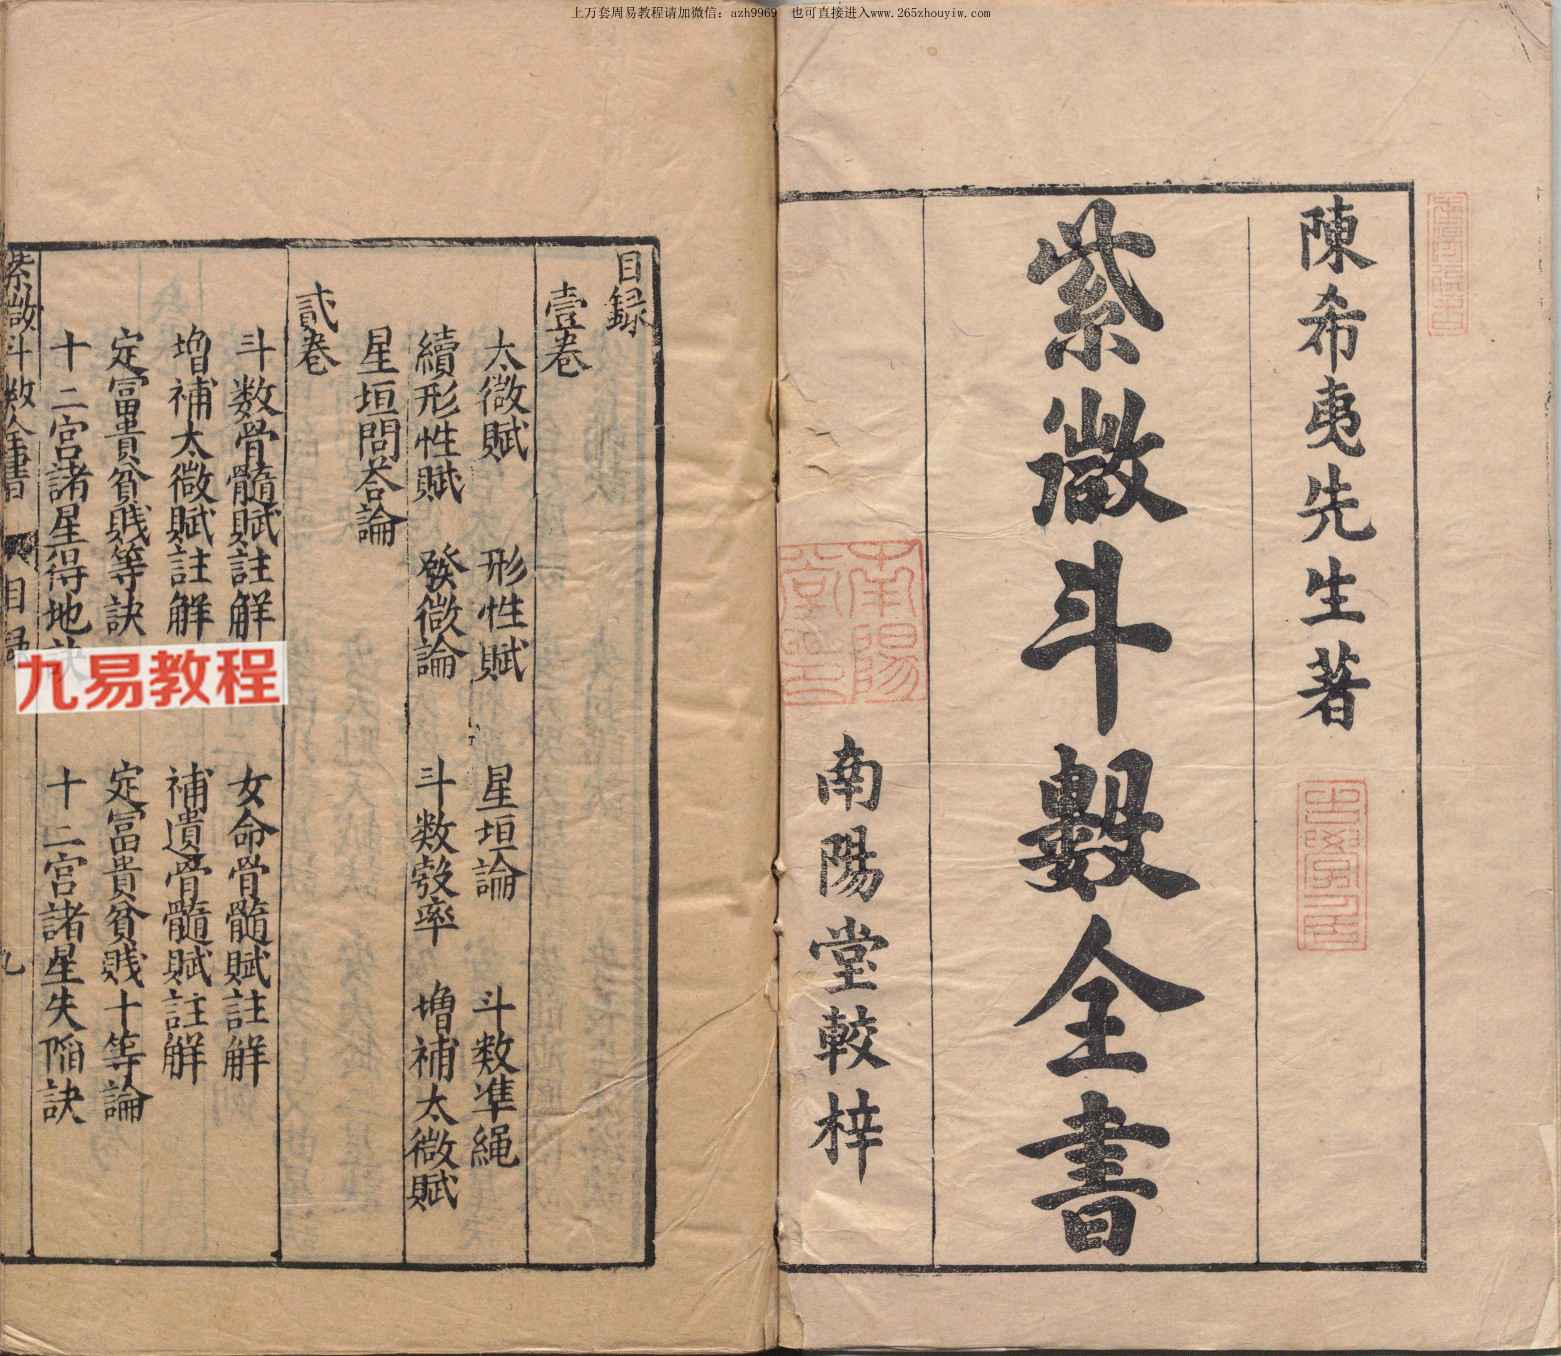 上万套周易教程请加微信：azh9969 也可直接进入www.265zhouyiw.com
陳希夷先生著
紫微斗數全書
南陽堂較梓
南陽
堂
目録
壹卷
太微賦 形性賦 星垣論 斗数準繩
續形性賦 發微論 斗数彀率 增補太微賦
星垣問荅論
貳卷
斗数骨髓賦註解 女命骨髓賦註解
增補太微賦註解 補遺骨髓賦註解
定富貴貧賤等訣 定富貴貧賤十等論
十二宮諸星得地 十二宮諸星失陷訣
紫微斗数全書 目録 九
九易教程